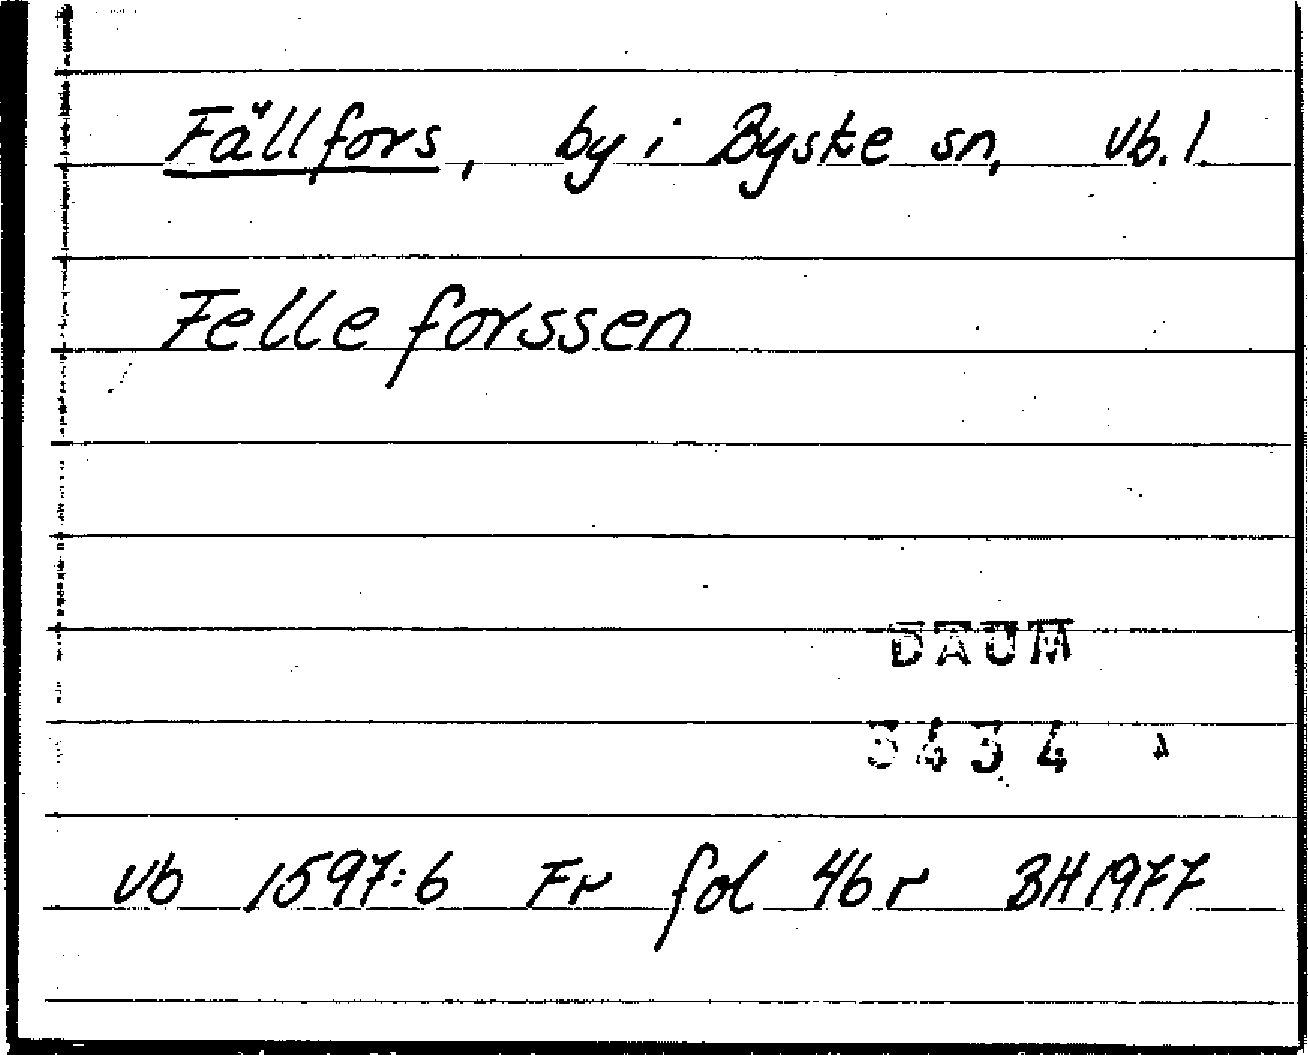 Fällfors, by i Byske sn, Vb. l.
Felleforssen
DAUM
3434
Vb 1597:6 Fr fol 46r BH 1977